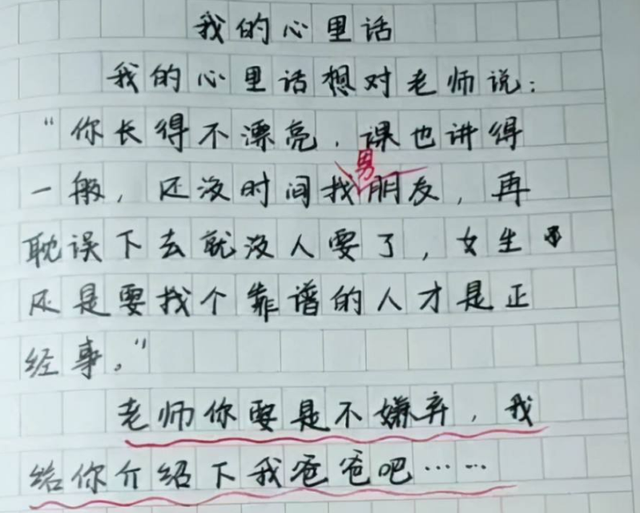 我的心里话
我的心里话想对老师说：
“你长得不漂亮，课也讲得
男
一般，还没时间找朋友，再
耽误下去就没人要了，女生
还是要找个靠谱的人才是正
经事。”
老师你要是不嫌弃，我
给你介绍下我爸爸吧……